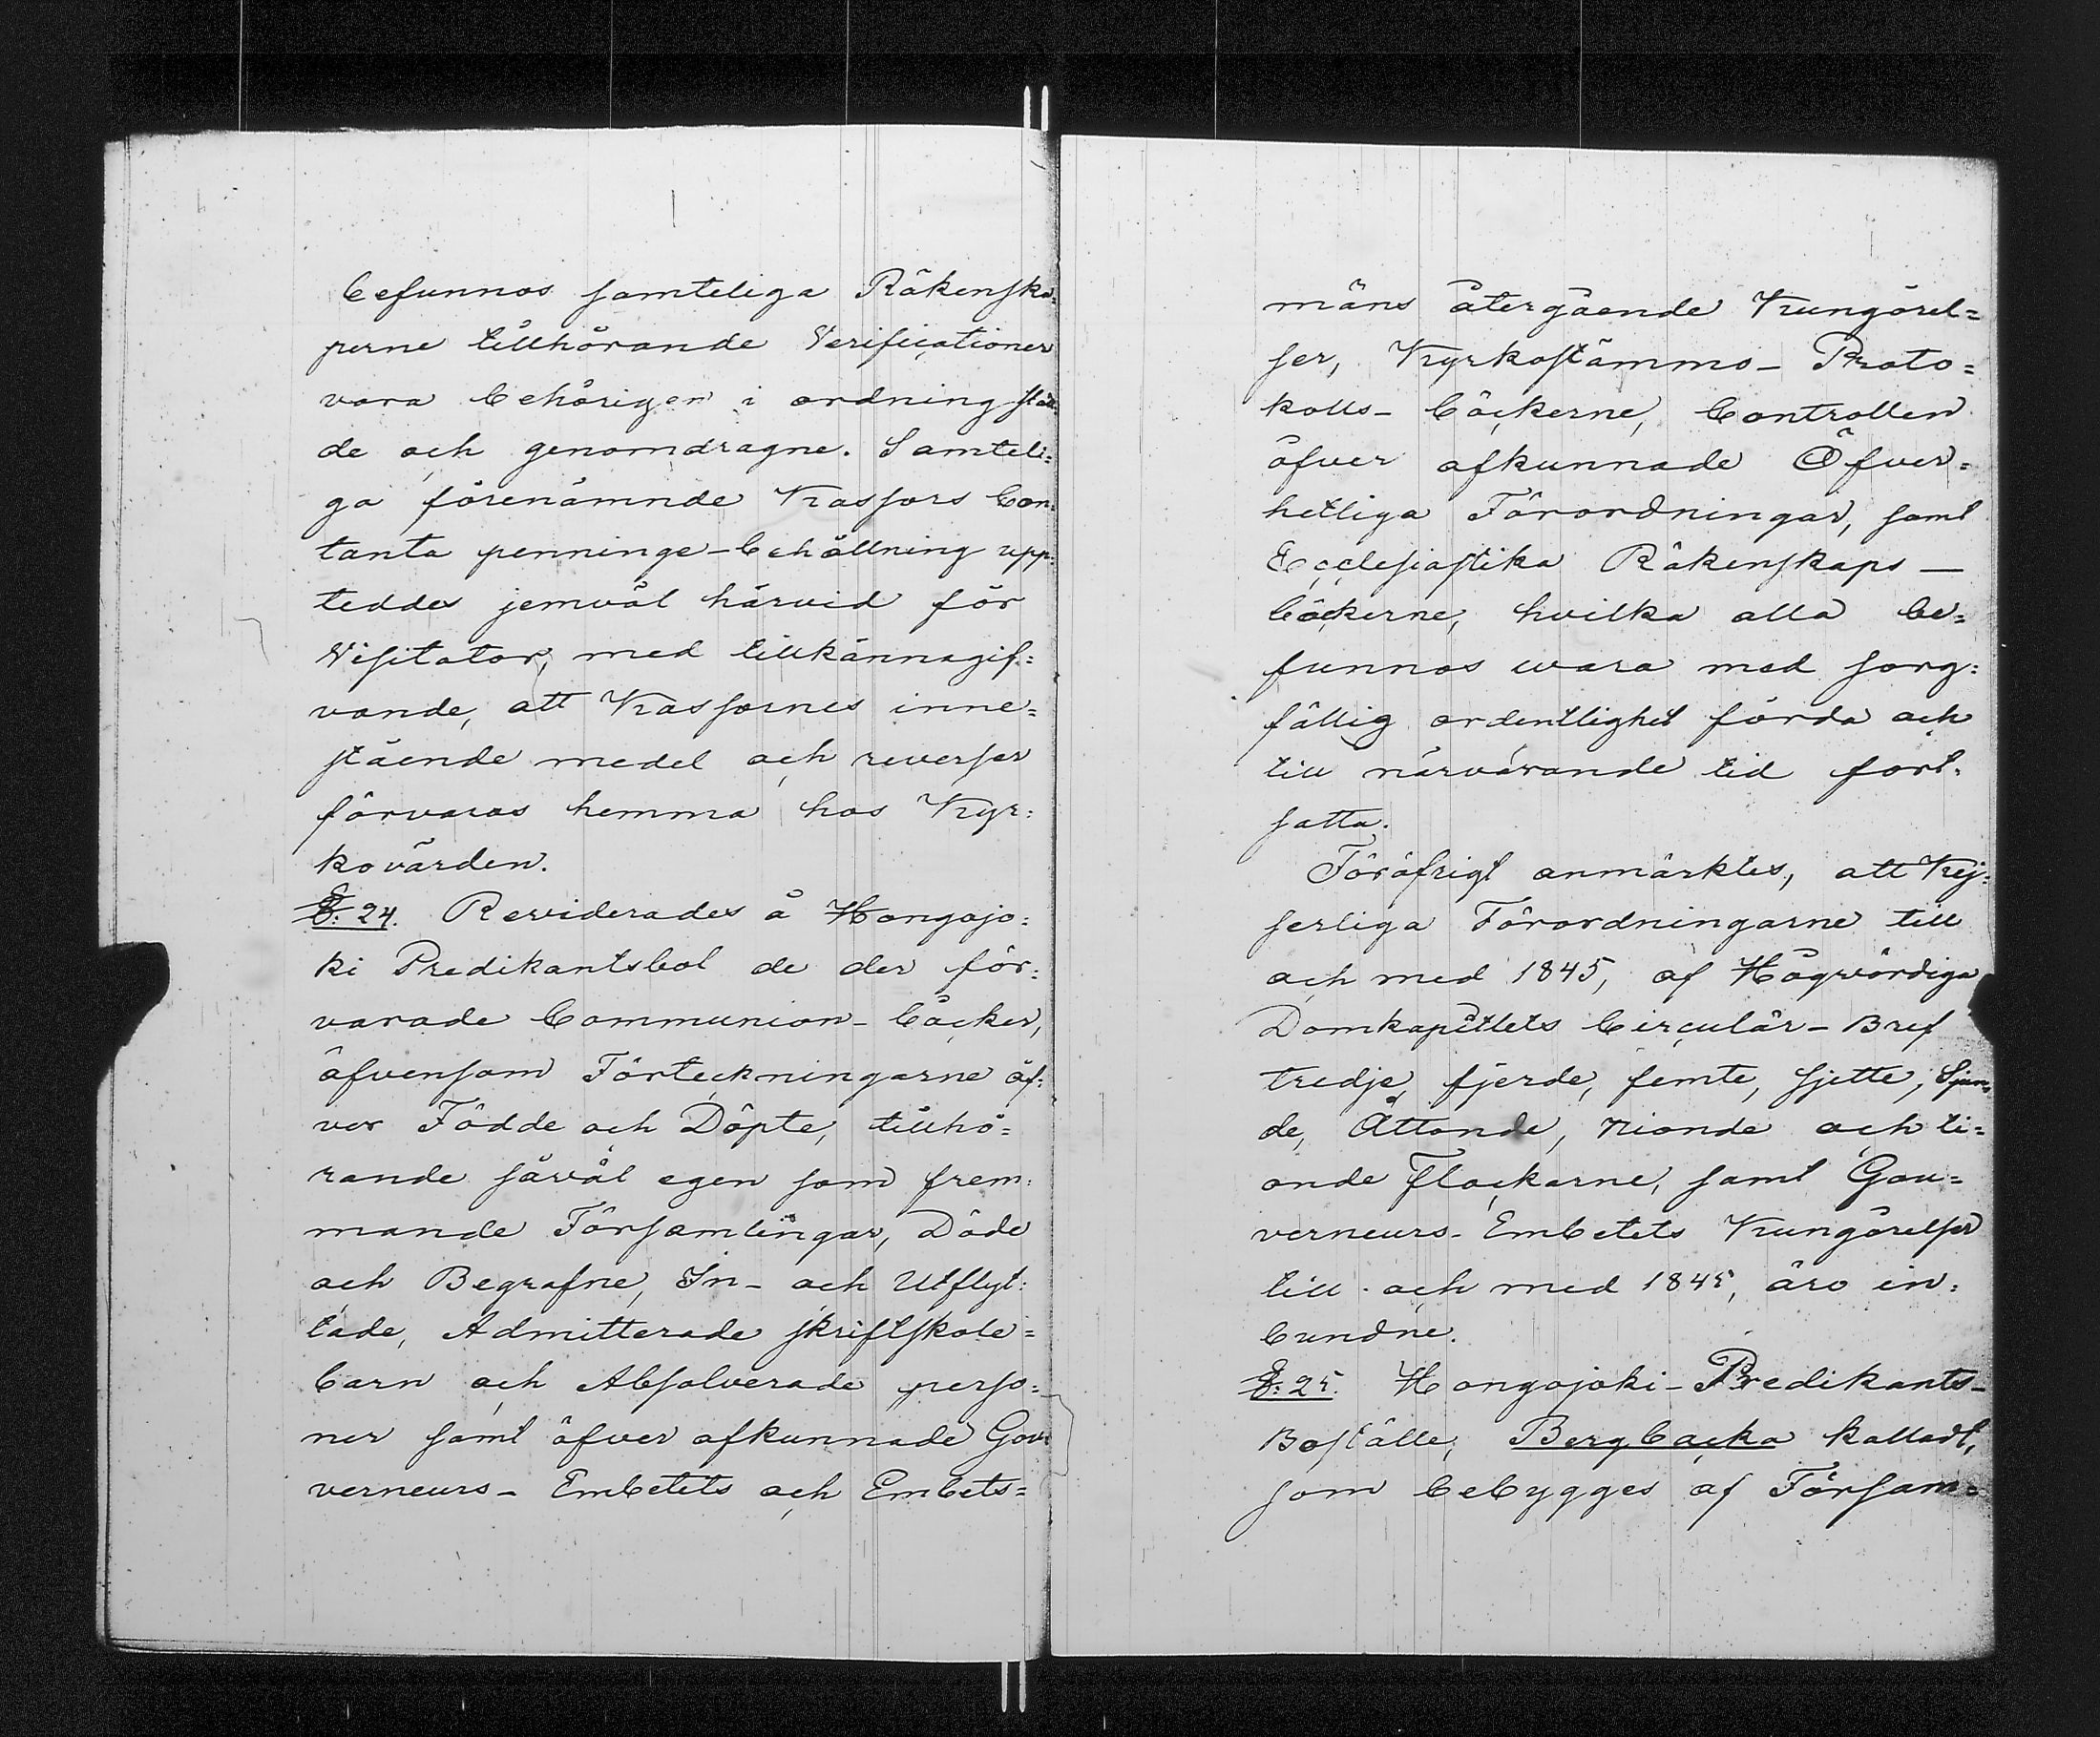 befunnos samteliga Räkenska=
perne tillhörande Verificationer
vara behörigen i ordning stäl=
de och genomdragne. Samteli=
ga förenämnde Kassors Con=
tanta penninge-behållning upp=
teddes jemväl härvid för
Visitator, med tillkännagif=
vande, att Kassornes inne=
stående medel och reverser
förvaras hemma hos Kyr=
kovärden.
§. 24. Reviderades å Hongojo=
ki Predikantsbol de der för=
varade Communion-böcker,
äfvensom Förteckningarne öf=
ver Födde och Döpte, tillhö=
rande såväl egen som frem=
mande Församlingar, Döde
och Begrafne, In- och Utflyt=
tade, Admitterade skriftskole=
barn och Absolverade perso=
ner samt öfver afkunnade Gou=
verneurs-Embetets och Embets=
mäns återgående Kungörel=
ser, Kyrkostämmo-Proto=
kolls-böckerne, Controllen
öfver afkunnade Öfver=
hetliga Förordningar, samt
Ecclesiastika Räkenskaps-
böckerne, hvilka alla be=
funnos wara med sorg=
fällig ordentlighet förda och
till närvarande tid fort=
satta.
Föröfrigt anmärktes, att Kej=
serliga Förordningarne till
och med 1845, af Högvördiga
Domkapitlets Circulär-Bref
tredje, fjerde, femte, sjette, Sjun=
de, Åttonde, Nionde och ti=
onde Flockarne, samt Gou=
verneurs-Embetets Kungörelser
till och med 1845, äro in=
bundne.
§. 25. Hongojoki-Predikants-
Boställe, Bergbacka kalladt,
som bebygges af Försam=